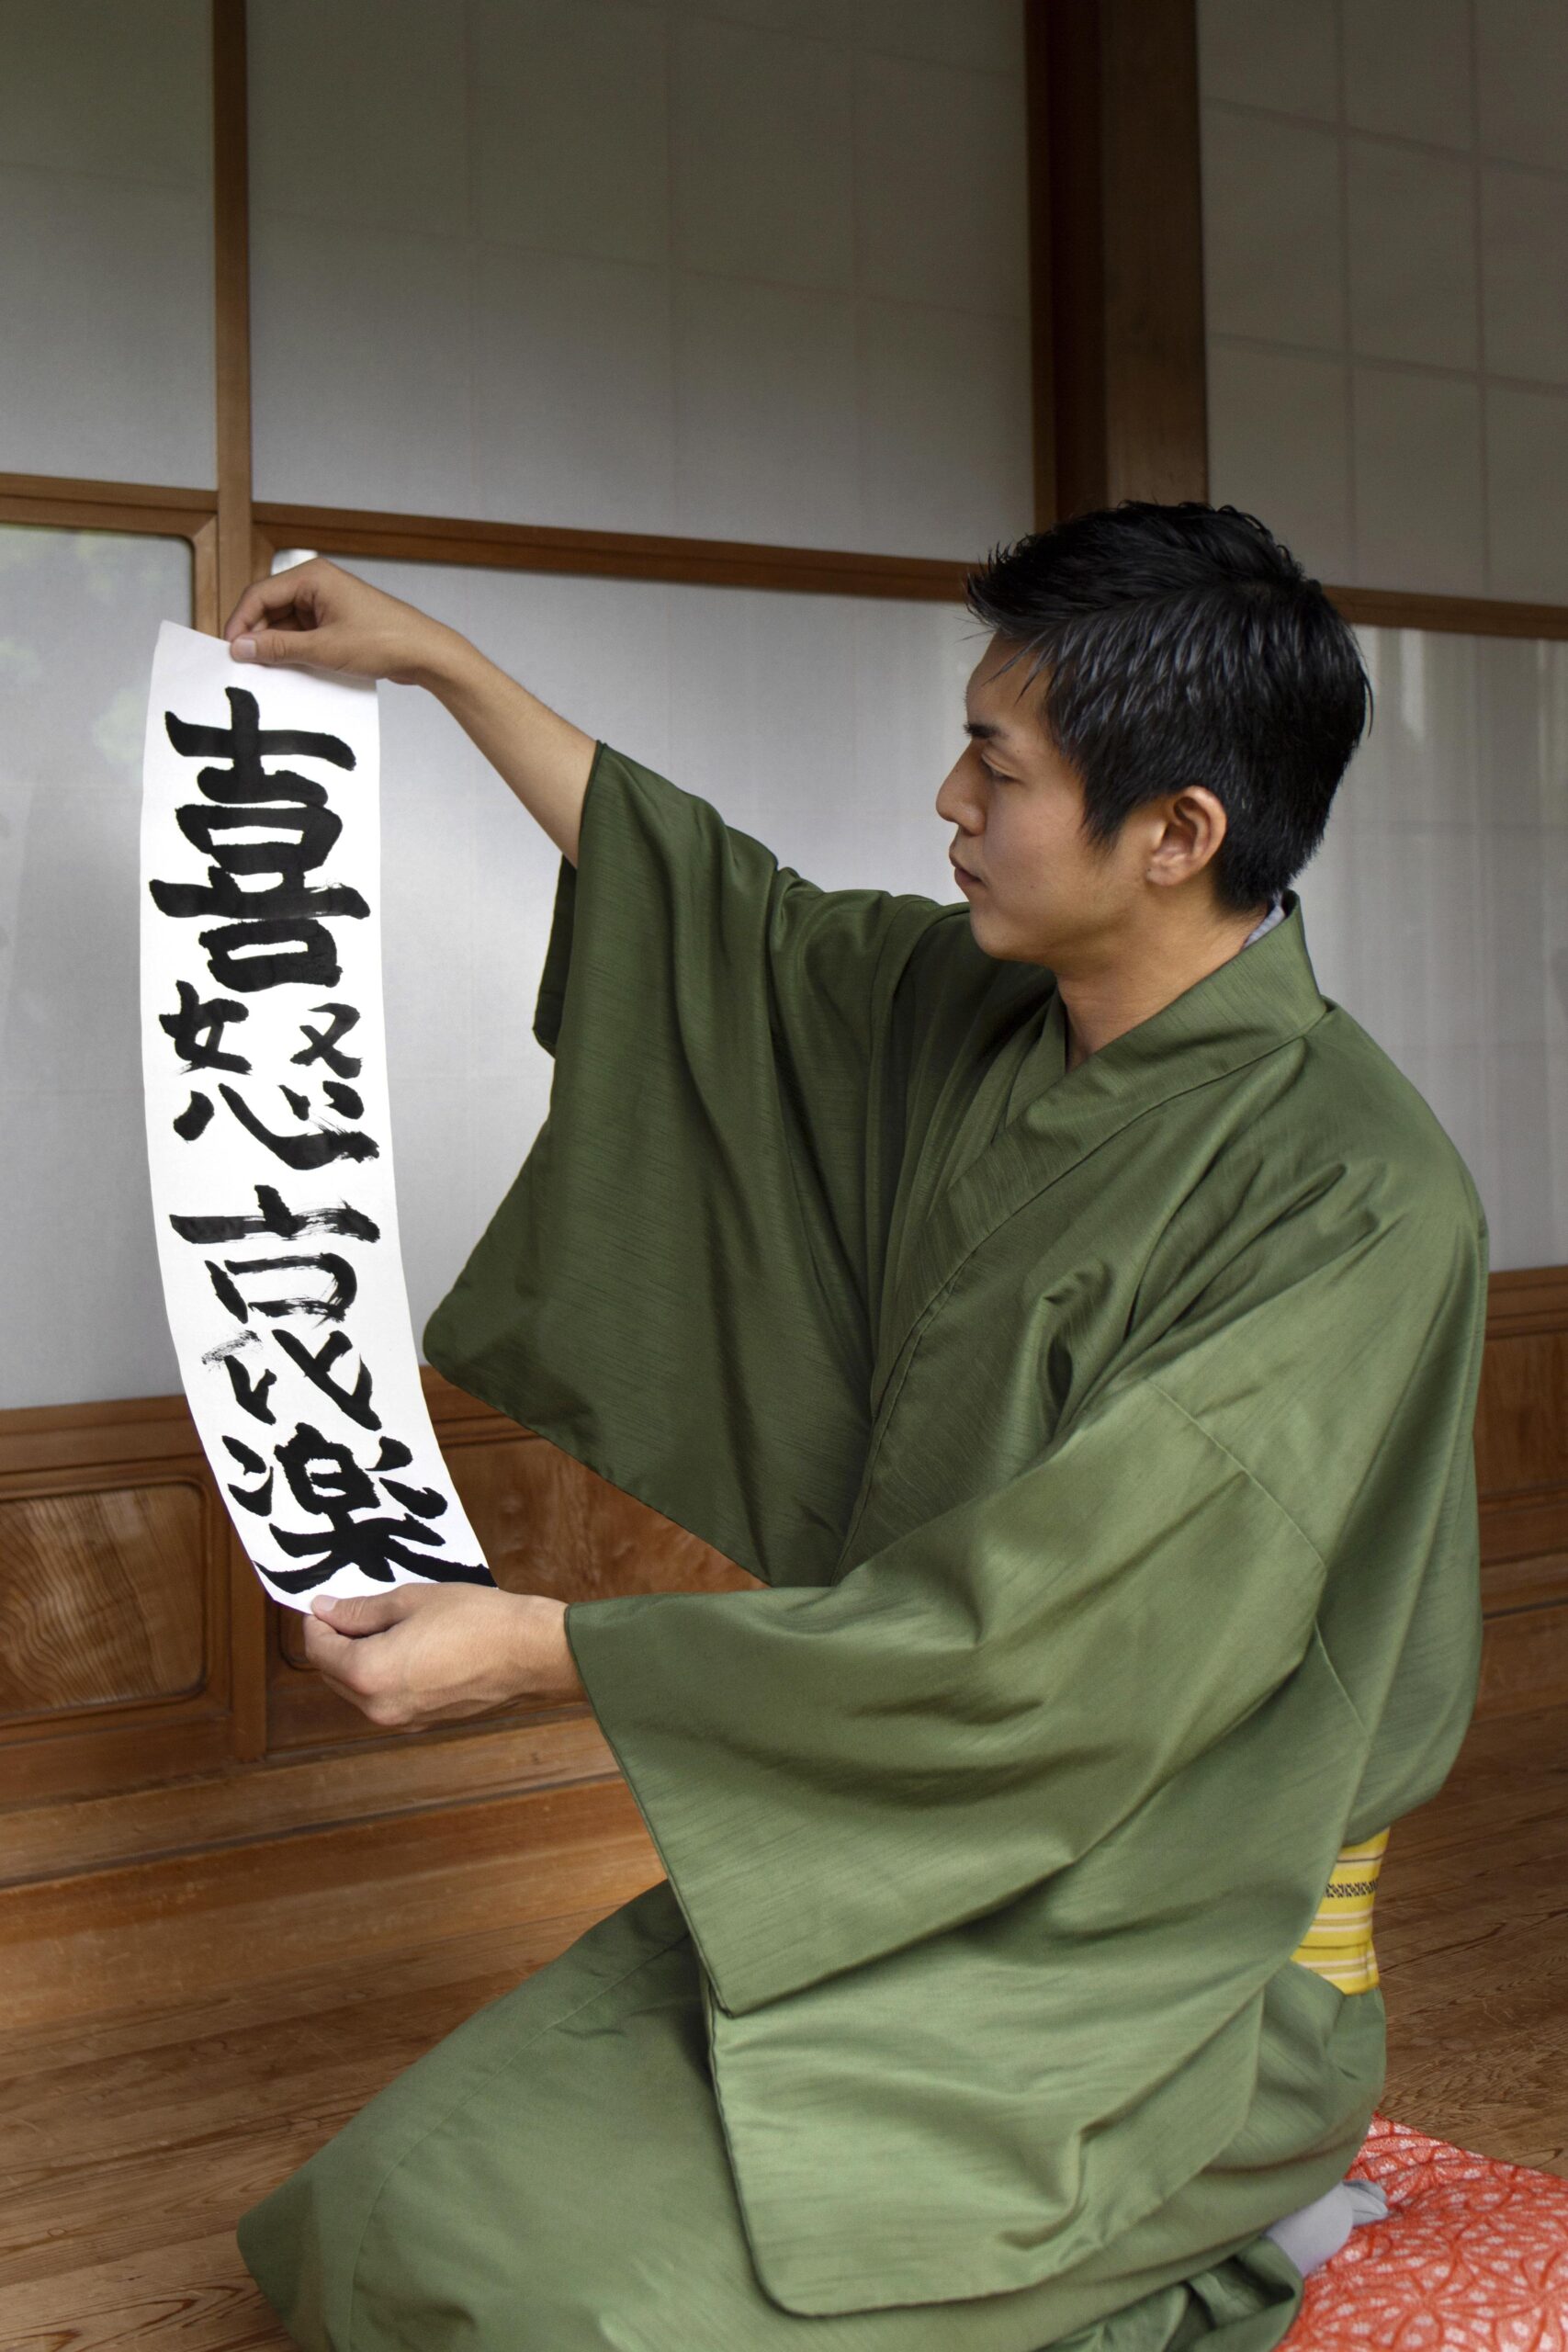 喜怒哀楽